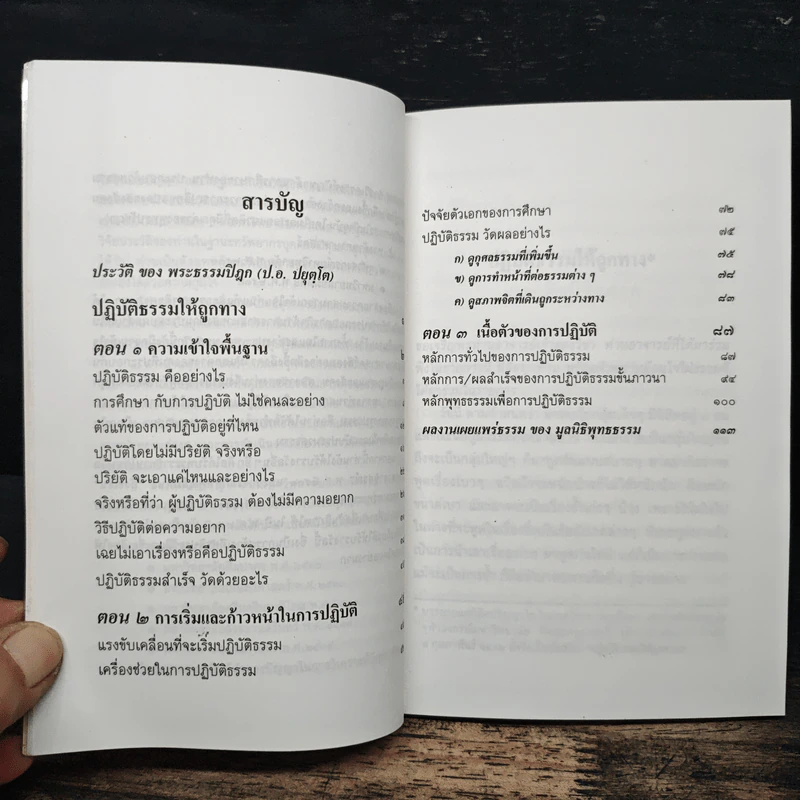 สารบัญ
ประวัติ ของ พระธรรมปิฎก (ป.อ. ปยุตฺโต)
ปฏิบัติธรรมให้ถูกทาง
ตอน ๑ ความเข้าใจพื้นฐาน
ปฏิบัติธรรม คืออย่างไร
การศึกษา กับการปฏิบัติ ไม่ใช่คนละอย่าง
ตัวแท้ของการปฏิบัติอยู่ที่ไหน
ปฏิบัติโดยไม่มีปริยัติ จริงหรือ
ปริยัติ จะเอาแค่ไหนและอย่างไร
จริงหรือที่ว่า ผู้ปฏิบัติธรรม ต้องไม่มีความอยาก
วิธีปฏิบัติต่อความอยาก
เฉยไม่เอาเรื่องหรือคือปฏิบัติธรรม
ปฏิบัติธรรมสำเร็จ วัดด้วยอะไร
ตอน ๒ การเริ่มและก้าวหน้าในการปฏิบัติ
แรงขับเคลื่อนที่จะเริ่มปฏิบัติธรรม
เครื่องช่วยในการปฏิบัติธรรม
ปัจจัยตัวเอกของการศึกษา ๗๒
ปฏิบัติธรรม วัดผลอย่างไร ๗๕
ก) ดูกุศลธรรมที่เพิ่มขึ้น ๗๕
ข) ดูการทำหน้าที่ต่อธรรมต่าง ๆ ๗๘
ค) ดูสภาพจิตที่เดินถูกระหว่างทาง ๘๓
ตอน ๓ เนื้อตัวของการปฏิบัติ ๘๗
หลักการทั่วไปของการปฏิบัติธรรม ๘๗
หลักการ/ผลสำเร็จของการปฏิบัติธรรมขั้นภาวนา ๙๔
หลักพุทธธรรมเพื่อการปฏิบัติธรรม ๑๐๐
ผลงานเผยแพร่ธรรม ของ มูลนิธิพุทธธรรม ๑๑๓